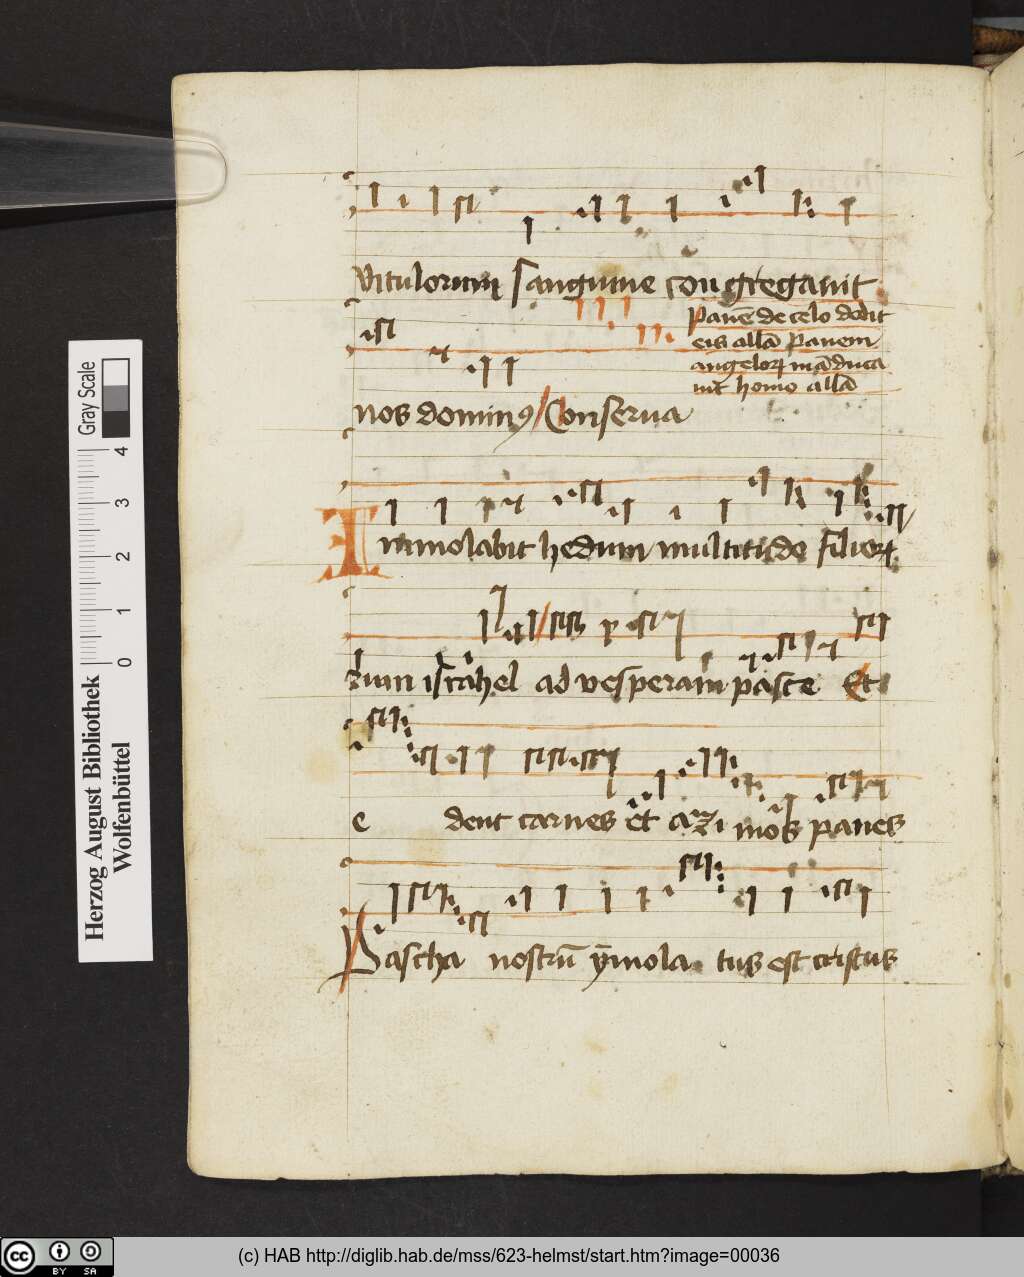 vitulorum sanguine congregauit
Panē de celo dedit
eis allā Panem
angeloꝝ māduca
uit homo allā
nos dominꝰ Conserua
Immolabit hedum multitudo filioꝝ
israhel ad vesperam pasce Et
e dent carnes et azi mos panes
Pascha nostrū ymola tus est cristus
Gray Scale
4
3
2
1
0
Herzog August Bibliothek
Wolfenbüttel
cc BY SA
(c) HAB http://diglib.hab.de/mss/623-helmst/start.htm?image=00036